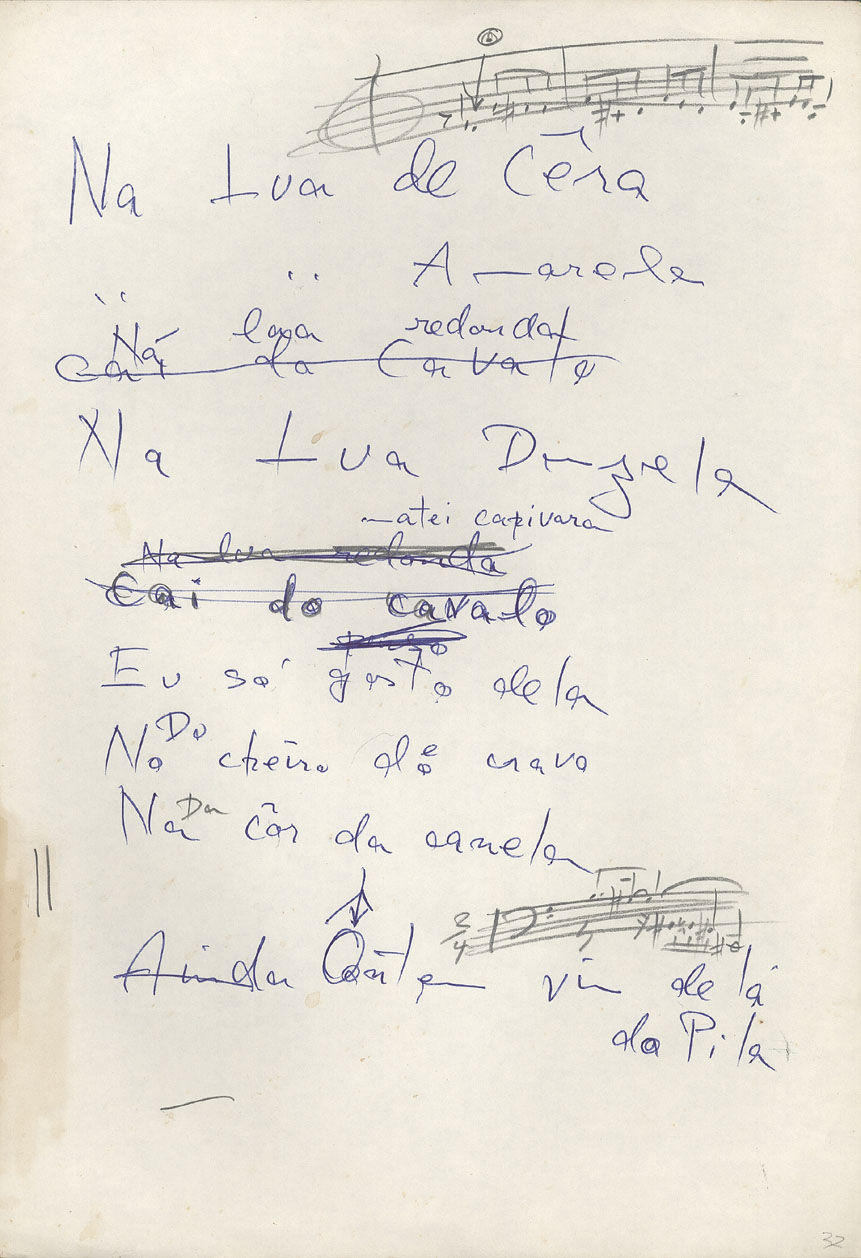 Na Lua de Cêra
Amarela
Ná lua redonda
Caí do Cavalo
Na Lua Donzela
matei capivara
Na lua redonda
Cai do cavalo
Eu só gosto dela
No Do cheiro do e cravo
Na Da côr da canela
2/4
Ainda Ontem vim de lá
do Pilá
32